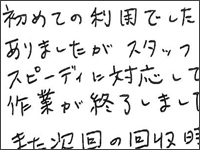 初めての利用でした
ありましたが スタッフ
スピーディに対応して
作業が終了しまして
また次回の回収時